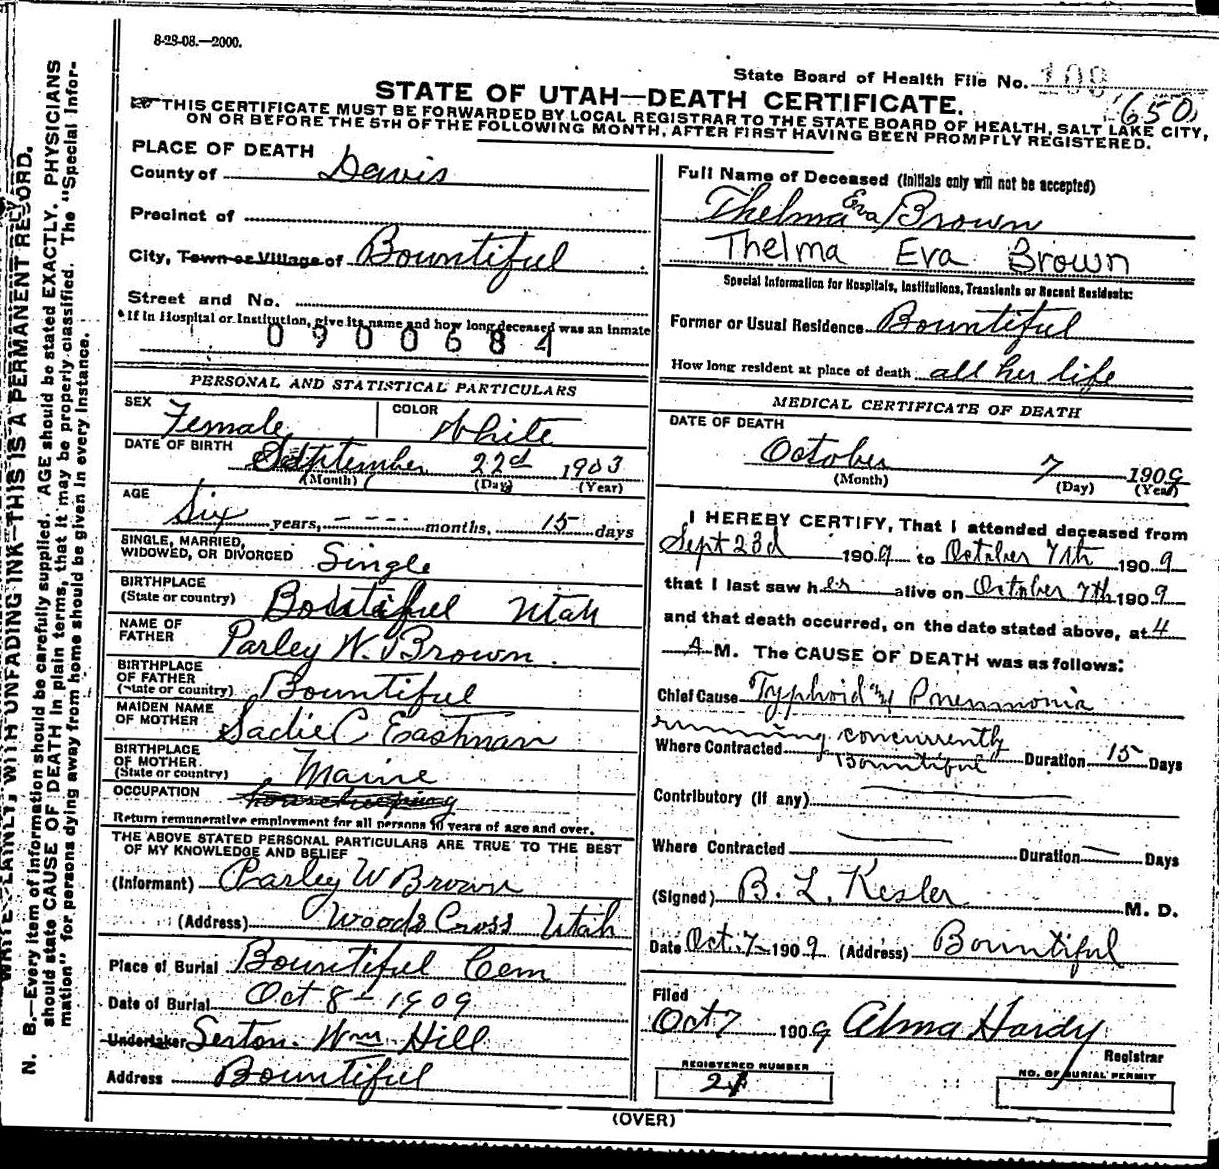 8-23-08.—2000.
State Board of Health File No. 100
650
STATE OF UTAH—DEATH CERTIFICATE.
THIS CERTIFICATE MUST BE FORWARDED BY LOCAL REGISTRAR TO THE STATE BOARD OF HEALTH, SALT LAKE CITY,
ON OR BEFORE THE 5TH OF THE FOLLOWING MONTH, AFTER FIRST HAVING BEEN PROMPTLY REGISTERED.
PLACE OF DEATH
County of Davis
Precinct of
City, Town or Village of Bountiful
Street and No.
*If in Hospital or Institution, give its name and how long deceased was an inmate
0900684
PERSONAL AND STATISTICAL PARTICULARS
SEX Female COLOR White
DATE OF BIRTH September 22d 1903
(Month) (Day) (Year)
AGE Six years, - - - - months, 15 days
SINGLE, MARRIED,
WIDOWED, OR DIVORCED Single
BIRTHPLACE
(State or country) Bountiful Utah
NAME OF
FATHER Parley W. Brown.
BIRTHPLACE
OF FATHER
(State or country) Bountiful
MAIDEN NAME
OF MOTHER Sadie C Eastman
BIRTHPLACE
OF MOTHER.
(State or country) Maine
OCCUPATION housekeeping
Return remunerative employment for all persons 10 years of age and over.
THE ABOVE STATED PERSONAL PARTICULARS ARE TRUE TO THE BEST
OF MY KNOWLEDGE AND BELIEF
(Informant) Parley W Brown
(Address) Woods Cross Utah
Place of Burial Bountiful Cem
Date of Burial Oct 8th 1909
Undertaker Sexton. Wm Hill
Address Bountiful
Full Name of Deceased (Initials only will not be accepted)
Thelma Eva Brown
Thelma Eva Brown
Special Information for Hospitals, Institutions, Transients or Recent Residents:
Former or Usual Residence Bountiful
How long resident at place of death all her life
MEDICAL CERTIFICATE OF DEATH
DATE OF DEATH
October 7 1909
(Month) (Day) (Year)
I HEREBY CERTIFY, That I attended deceased from
Sept 23d 1909 to October 7th 1909
that I last saw her alive on October 7th 1909
and that death occurred, on the date stated above, at 4
A M. The CAUSE OF DEATH was as follows:
Chief Cause Typhoid and Pneumonia
running concurrently
Where Contracted Bountiful Duration 15 Days
Contributory (if any)
Where Contracted Duration Days
(Signed) B. L. Kesler M. D.
Date Oct. 7 1909 (Address) Bountiful
Filed
Oct 7 1909 Alma Hardy
Registrar
REGISTERED NUMBER
21
NO. OF BURIAL PERMIT
(OVER)
WRITE PLAINLY, WITH UNFADING INK—THIS IS A PERMANENT RECORD.
N. B.—Every item of information should be carefully supplied. AGE should be stated EXACTLY. PHYSICIANS
should state CAUSE OF DEATH in plain terms, that it may be properly classified. The "Special Infor-
mation" for persons dying away from home should be given in every instance.